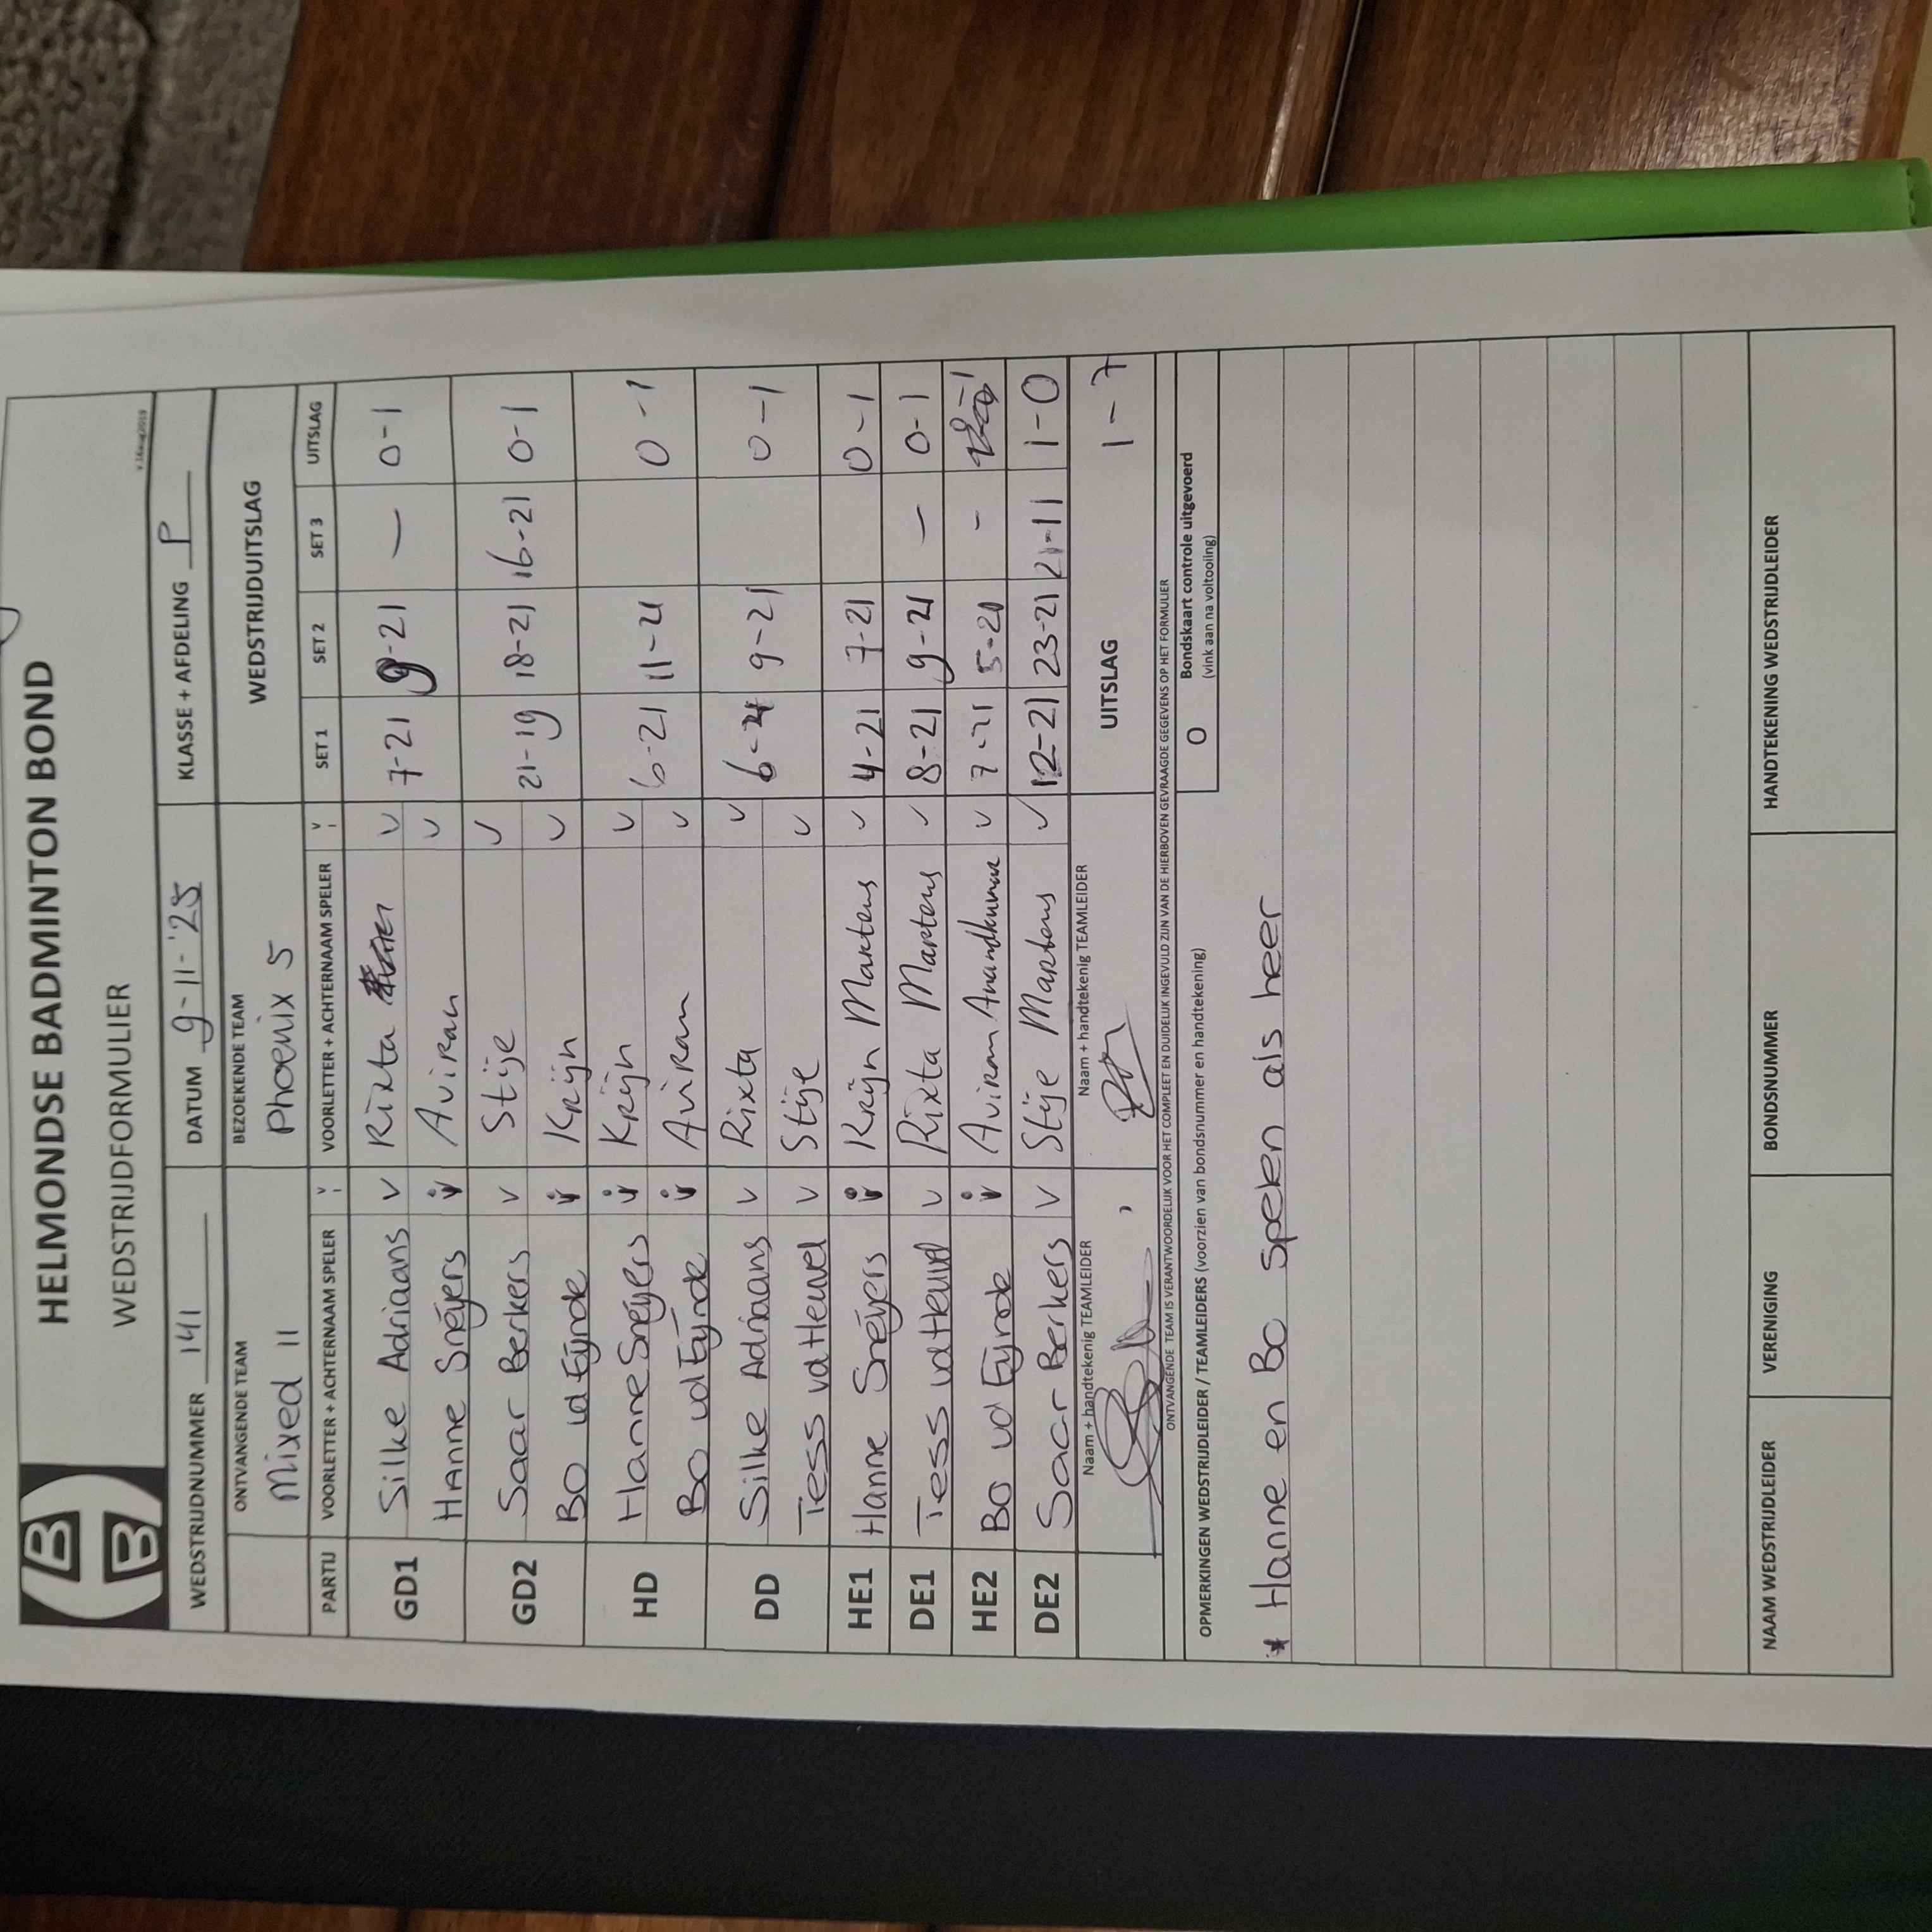 HELMONDSE BADMINTON BOND
WEDSTRIJDFORMULIER
v.16aug2019
WEDSTRIJDNUMMER 141 DATUM 9-11-'25 KLASSE + AFDELING P
ONTVANGENDE TEAM BEZOEKENDE TEAM WEDSTRIJDUITSLAG
Mixed 11 Phoenix 5
PARTIJ VOORLETTER + ACHTERNAAM SPELER V VOORLETTER + ACHTERNAAM SPELER V SET 1 SET 2 SET 3 UITSLAG
GD1 Silke Adriaans v Rixta v 7-21 9-21 — 0-1
Hanne Sneijers v Aviram v
GD2 Saar Berkers v Stije v 21-19 18-21 16-21 0-1
Bo vd Eijnde v Krijn v
HD Hanne Sneijers v Krijn v 6-21 11-21 0-1
Bo vd Eijnde v Aviram v
DD Silke Adriaans v Rixta v 6-21 9-21 0-1
Tess vd Heuvel v Stije v
HE1 Hanne Sneijers v Krijn Martens v 4-21 7-21 0-1
DE1 Tess vd Heuvel v Rixta Martens v 8-21 9-21 — 0-1
HE2 Bo vd Eijnde v Aviram Anandkumar v 7-21 5-21 -
DE2 Saar Berkers v Stije Martens v 12-21 23-21 21-11 1-0
Naam + handtekenig TEAMLEIDER Naam + handtekenig TEAMLEIDER UITSLAG 1-7
ONTVANGENDE TEAM IS VERANTWOORDELIJK VOOR HET COMPLEET EN DUIDELIJK INGEVULD ZIJN VAN DE HIERBOVEN GEVRAAGDE GEGEVENS OP HET FORMULIER
OPMERKINGEN WEDSTRIJDLEIDER / TEAMLEIDERS (voorzien van bondsnummer en handtekening) O Bondskaart controle uitgevoerd
(vink aan na voltooiing)
* Hanne en Bo spelen als heer
NAAM WEDSTRIJDLEIDER VERENIGING BONDSNUMMER HANDTEKENING WEDSTRIJDLEIDER